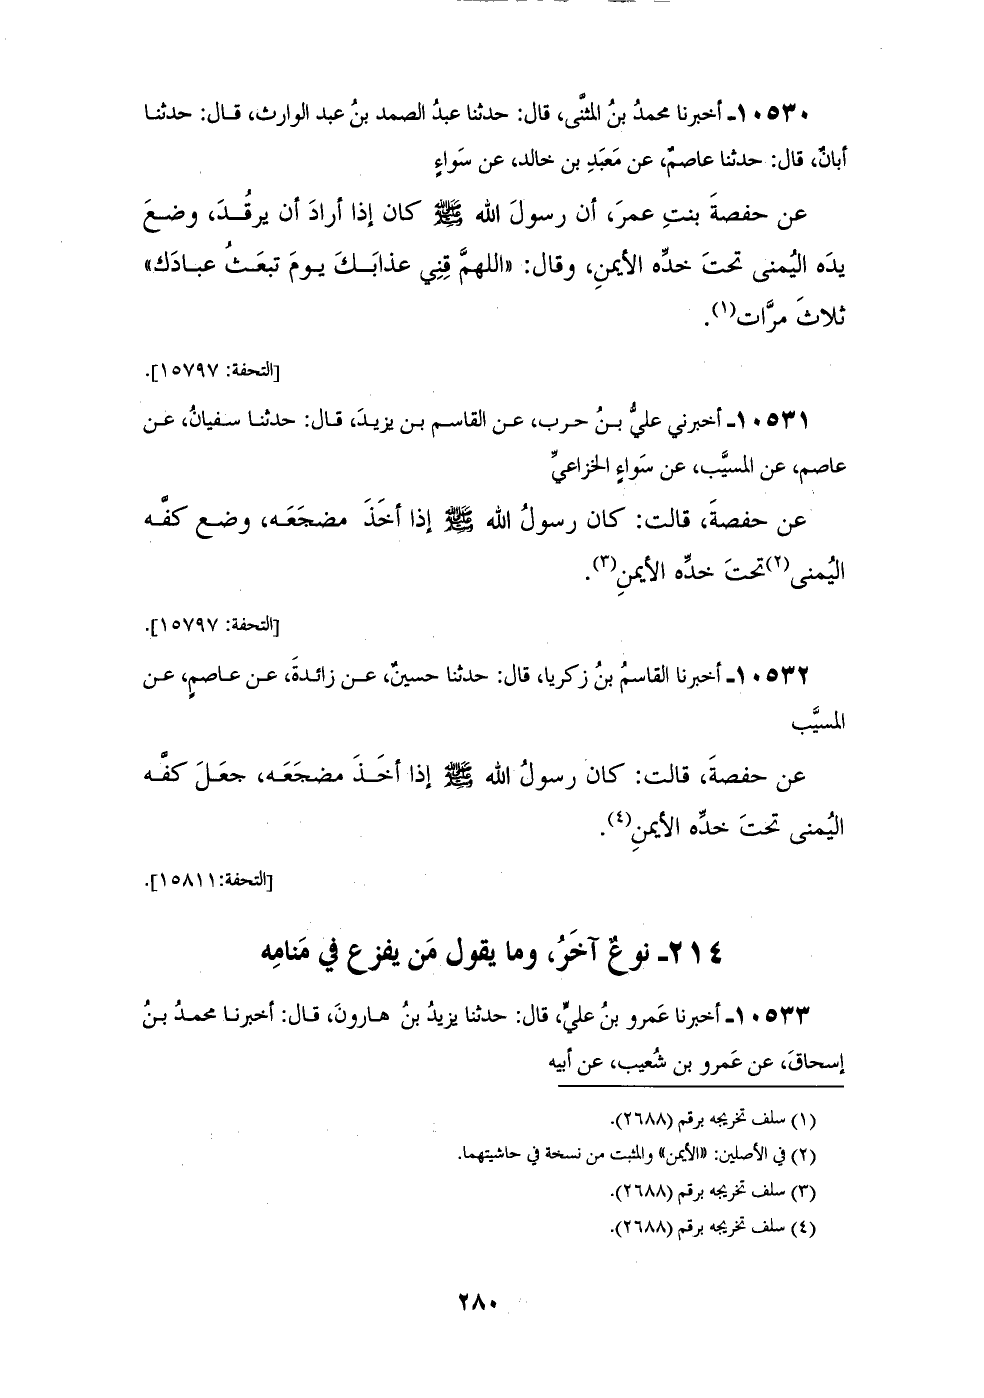 ١٠٥٣٠ـ أخبرنا محمدُ بنُ المثنَّى، قال: حدثنا عبدُ الصمد بنُ عبد الوارث، قـال: حدثنـا
أبانٌ، قال: حدثنا عاصمٌ، عن مَعبَدِ بن خالد، عن سَواءٍ
عن حفصةَ بنتِ عمرَ، أن رسولَ الله ﷺ كان إذا أرادَ أن يرقُـدَ، وضـعَ
يدَه اليُمنى تحتَ خدِّه الأيمنِ، وقال: «اللهمَّ قِنِي عذابَـكَ يـومَ تبعَـثُ عبـادَك»
ثلاثَ مرَّات(١).
[التحفة: ١٥٧٩٧].
١٠٥٣١ـ أخبرني عليُّ بـنُ حرب، عـن القاسـم بـن يزيـدَ، قـال: حدثنـا سـفيانُ، عـن
عاصم، عن المسيَّب، عن سَواءٍ الخزاعيِّ
عن حفصةَ، قالت: كان رسولُ الله ﷺ إذا أخَذَ مضجَعَه، وضع كفَّـه
اليُمنى(٢)تحتَ خدِّه الأيمنِ(٣).
[التحفة: ١٥٧٩٧].
١٠٥٣٢ـ أخبرنا القاسمُ بنُ زكريا، قال: حدثنا حسينٌ، عـن زائـدةَ، عـن عـاصمٍ، عـن
المسيَّب
عن حفصةَ، قالت: كان رسولُ الله ﷺ إذا أخَـذَ مضجَعَـه، جعَـلَ كفَّـه
اليُمنى تحتَ خدِّه الأيمنِ(٤).
[التحفة:١٥٨١١].
٢١٤ـ نوعٌ آخَرُ، وما يقول مَن يفزع في مَنامِه
١٠٥٣٣ـ أخبرنا عَمرو بنُ عليٍّ، قال: حدثنا يزيدُ بنُ هـارونَ، قـال: أخبرنـا محمـدُ بـنُ
إسحاقَ، عن عَمرو بن شُعيب، عن أبيه
(١) سلف تخريجه برقم (٢٦٨٨).
(٢) في الأصلين: «الأيمن» والمثبت من نسخة في حاشيتهما.
(٣) سلف تخريجه برقم (٢٦٨٨).
(٤) سلف تخريجه برقم (٢٦٨٨).
٢٨٠